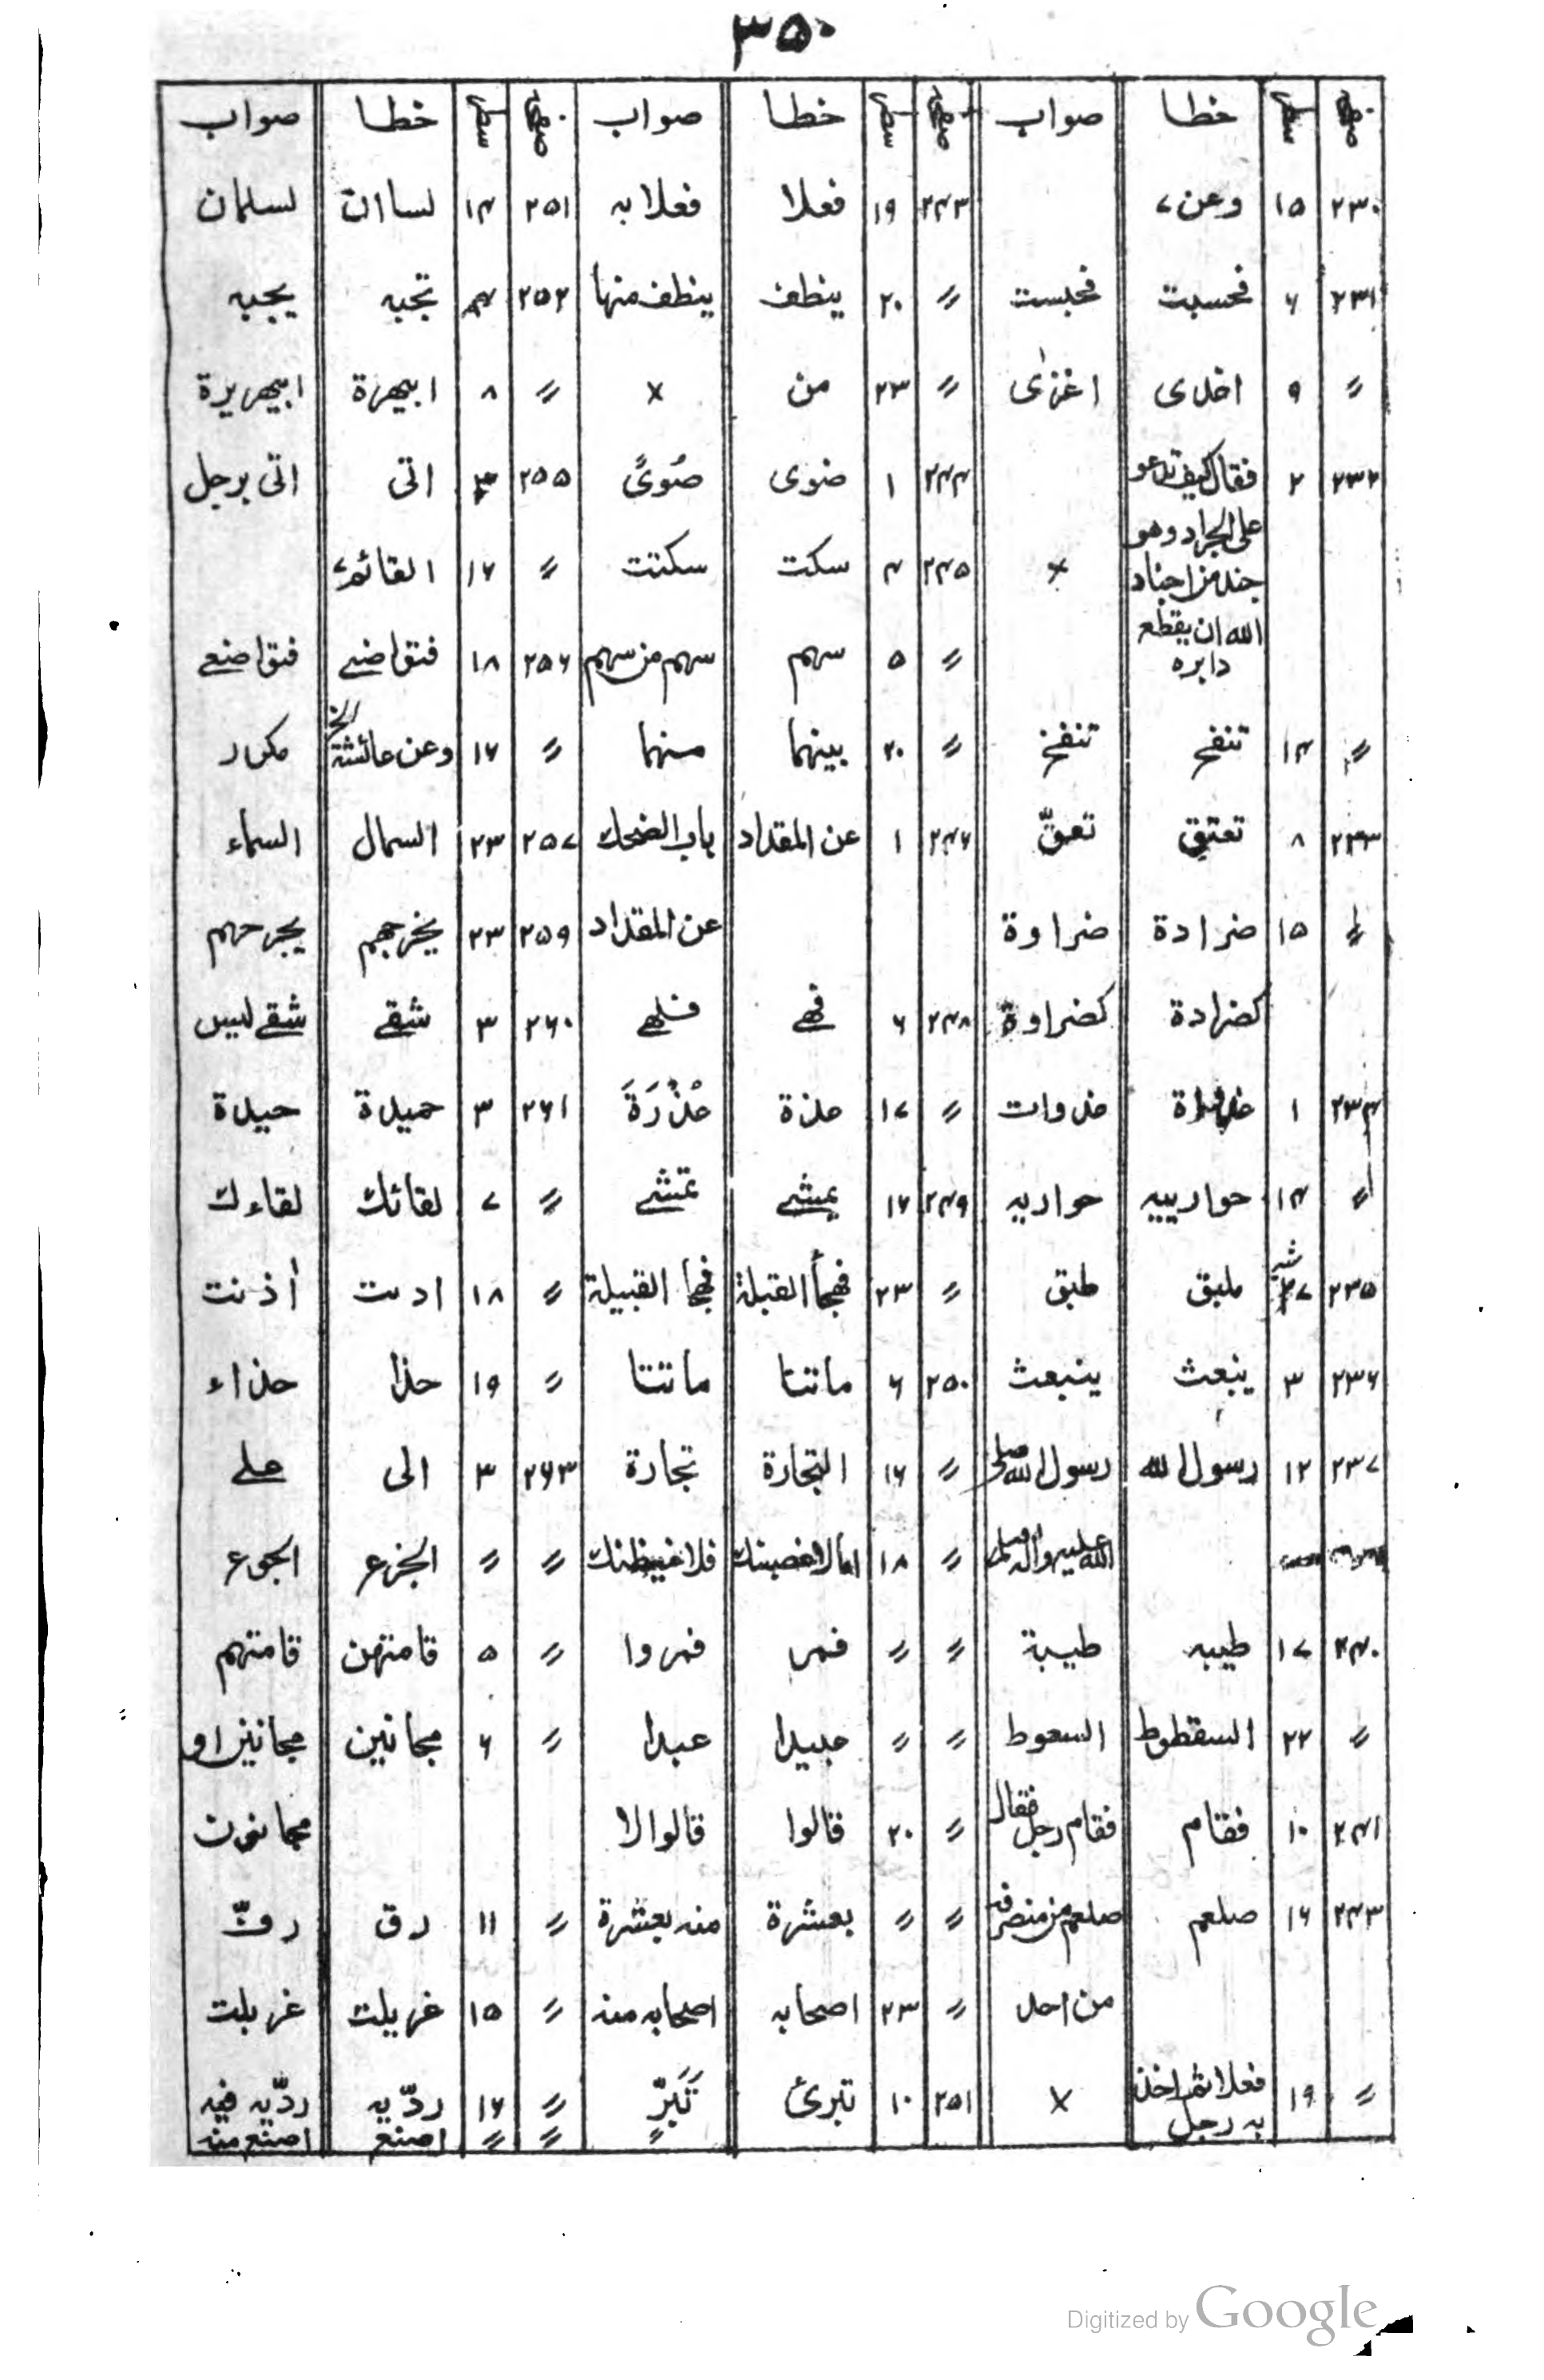 ٣٥٠
صفحہ سطر خطا صواب صفحہ سطر خطا صواب صفحہ سطر خطا صواب
٢٣٠ ١٥ وعن ٢٤٣ ١٩ فعلا فعلابه ٢٥١ ١٤ لساان لسلمان
٢٣١ ٦ فحسبت فحبست 〃 ٢٠ ينظف ينظف منها ٢٥٢ ٤ تجبه يجبه
〃 ٩ اخلى اغزى 〃 ٢٣ من × 〃 ٨ ابيهرة ابيهريرة
٢٣٢ ٢ فقال كيف تدعو ٢٤٤ ١ ضوى صُوىً ٢٥٥ ٣ اتى اتى برجل
على الجراد وهو
جند من اجناد × ٢٤٥ ٤ سكت سكتت 〃 ١٦ القائم
الله ان يقطع
دابره 〃 ٥ سهم سهم من سهم ٢٥٦ ١٨
〃 ١٤ تنفخ تنفخ 〃 ٢٠ بينهما منهما 〃 ١٧ وعن عائشة الخ مكرر
٢٣٣ ٨ تعتق تعقّ ٢٤٦ ١ عن المقداد باب الضحك ٢٥٧ ٢٣ السمال السماء
〃 ١٥ ضرادة ضراوة عن المقداد ٢٥٩ ٢٣ يخرجهم يجرحهم
كضرادة كضراوة ٢٤٨ ٦ فهى فلهى ٢٦٠ ٣ شقے شقے ليس
٢٣٤ ١ خدوات 〃 ١٧ حذرة ٢٦١ ٣ حميدة حيدة
〃 ١٤ حوارييه حواريه ٢٤٩ ١٦ يمشے تمشے 〃 ٧ لقائك لقاءك
٢٣٥ ٢٧ ملبق طبق 〃 ٢٣ فهجأ القبلة فهجا القبيلة 〃 ١٨ ادنت أذنت
٢٣٦ ٣ ينبعث ٢٥٠ ٦ ماتنا ماتتا 〃 ١٩ حذا حذاء
٢٣٧ ١٢ رسول الله رسول الله صلى 〃 ١٦ التجارة تجارة ٢٦٣ ٣ الى على
الله عليه وآله وسلم 〃 ١٨ 〃 〃 الجزع الجوع
٢٤٠ ١٧ طيبه طيبة 〃 〃 فمر فمروا 〃 ٥ قامتهن قامتهم
〃 ٢٢ السقطوط السعوط 〃 〃 عبيدا عبدا 〃 ٦ مجانين مجانين او
٢٤١ ١٠ فقام فقام رجل فقال 〃 ٢٠ قالوا قالوا لا مجانون
٢٤٣ ١٦ صلعم صلعم من منصرفه 〃 〃 بعشرة منه بعشرة 〃 ١١ رق
من احد 〃 ٢٣ اصحابه اصحابه منه 〃 ١٥ غريلت غربلت
〃 ١٩ فعلا ثم اخذ × ٢٥١ ١٠ تبرئ تَبَرّ 〃 ١٦ ردّيه ردّيه فيه
به رجل 〃 〃 اصنع اصنع منه
Digitized by Google